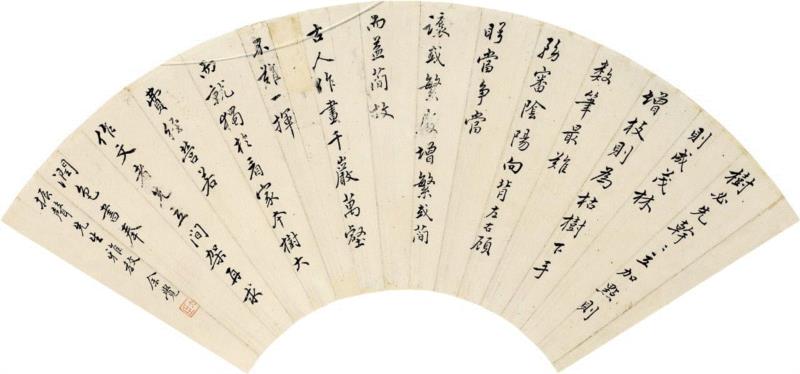 樹必先幹〻立加點則
則成茂林
增枝則為枯樹下手
數筆最難
務審陰陽向背左右顧
盼當爭當
讓或繁處增繁或簡
而益簡故
古人作畫千巖萬壑
不難一揮
而就獨於看家本樹大
費經營若
作文者先立間架再求
潤色書奉
振聲先生雅教 余覺